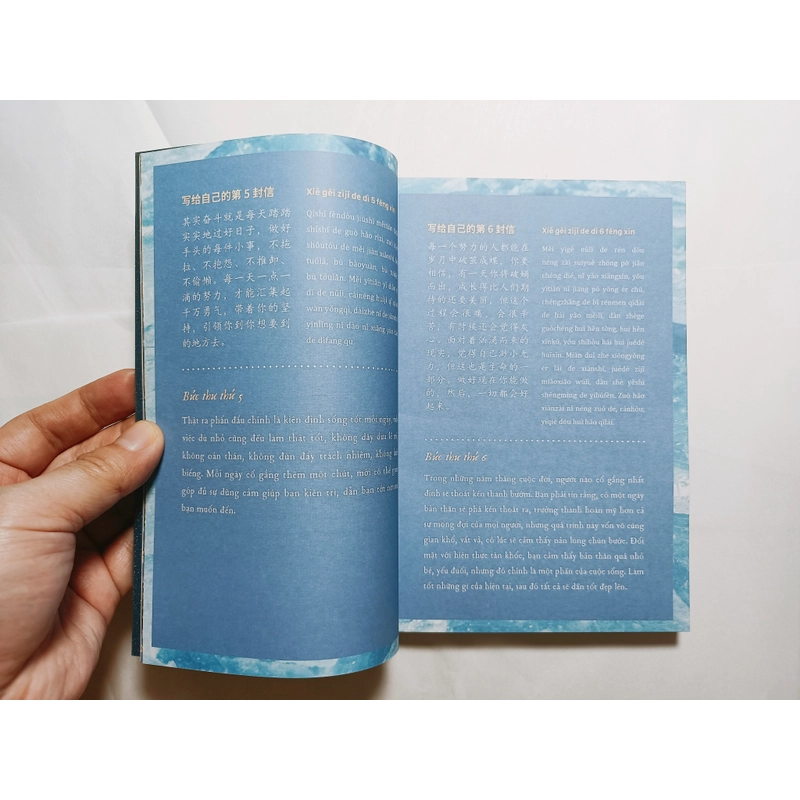 写给自己的第 5 封信
其实奋斗就是每天踏踏
实实地过好日子，做好
手头的每件小事，不拖
拉、不抱怨、不推卸、
不偷懒。每一天一点一
滴的努力，才能汇集起
千万勇气，带着你的坚
持，引领你到你想要到
的地方去。
Xiě gěi zìjǐ de dì 5 fēng xìn
Qíshí fèndòu jiùshì měitiān
shíshí de guò hǎo rìzi, zuò
shǒutóu de měi jiàn xiǎoshì
tuōlā, bù bàoyuàn, bù
bù tōulǎn. Měi yītiān yī diǎn
dī de nǔlì, cáinéng huìjí qǐ
wàn yǒngqì, dàizhe nǐ de
yǐnlǐng nǐ dào nǐ xiǎng yào
de dìfāng qù
Bức thư thứ 5
Thật ra phấn đấu chính là kiên định sống tốt mỗi ngày,
việc dù nhỏ cũng đều làm thật tốt, không dây dưa
không oán thán, không đùn đẩy trách nhiệm, không
biếng. Mỗi ngày cố gắng thêm một chút, mới có thể
góp đủ sự dũng cảm giúp bạn kiên trì, dẫn bạn tới nơi
bạn muốn đến.
写给自己的第 6 封信
每一个努力的人都能在
岁月中破茧成蝶，你要
相信，有一天你将破蛹
而出，成长得比人们期
待的还要美丽。但这个
过程会很痛，会很辛
苦，有时候还会觉得灰
心。面对着汹涌而来的
现实，觉得自己渺小无
力。但这也是生命的一
部分，做好现在你能做
的，然后，一切都会好
起来。
Xiě gěi zìjǐ de dì 6 fēng xìn
Měi yīgè nǔlì de rén dōu
néng zài suìyuè zhōng pò jiǎn
chéng dié, nǐ yào xiāngxìn, yǒu
yītiān nǐ jiāng pò yǒng ér chū,
chéngzhǎng dé bǐ rénmen qīdài
de hái yào měilì, dàn zhège
guòchéng huì hěn tòng, huì hěn
xīnkǔ, yǒu shíhòu hái huì juédé
huīxīn. Miàn duì zhe xiōngyǒng
ér lái de xiànshí, juédé zìjǐ
miǎoxiǎo wúlì, dàn zhè yěshì
shēngmìng de yībùfèn. Zuò hǎo
xiànzài nǐ néng zuò de, ránhòu,
yīqiè dōu huì hǎo qǐlái.
Bức thư thứ 6
Trong những năm tháng cuộc đời, người nào cố gắng nhất
định sẽ thoát kén thành bướm. Bạn phải tin rằng, có một ngày
bản thân sẽ phá kén thoát ra, trưởng thành hoàn mỹ hơn cả
sự mong đợi của mọi người, nhưng quá trình này vốn vô cùng
gian khổ, vất vả, có lúc sẽ cảm thấy nản lòng chùn bước. Đối
mặt với hiện thực tàn khốc, bạn cảm thấy bản thân quá nhỏ
bé, yếu đuối, nhưng đó chính là một phần của cuộc sống. Làm
tốt những gì của hiện tại, sau đó tất cả sẽ dần tốt đẹp lên.